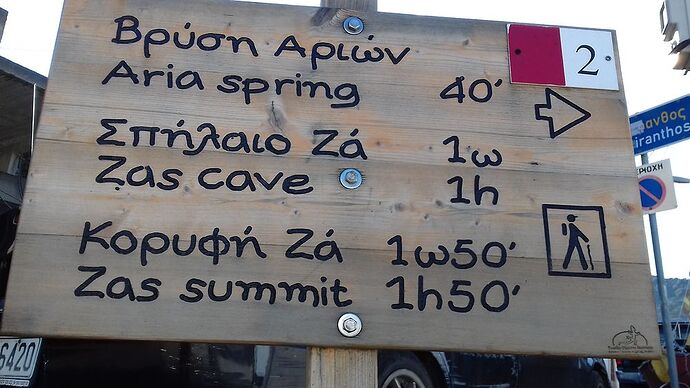 Βρύση Αριών
Aria spring 40'
2
Σπήλαιο Ζά 1ω
Zas cave 1h
Κορυφή Ζά 1ω50'
Zas summit 1h50'
ανθος
iranthos
ΡΙΟΧΗ
6420